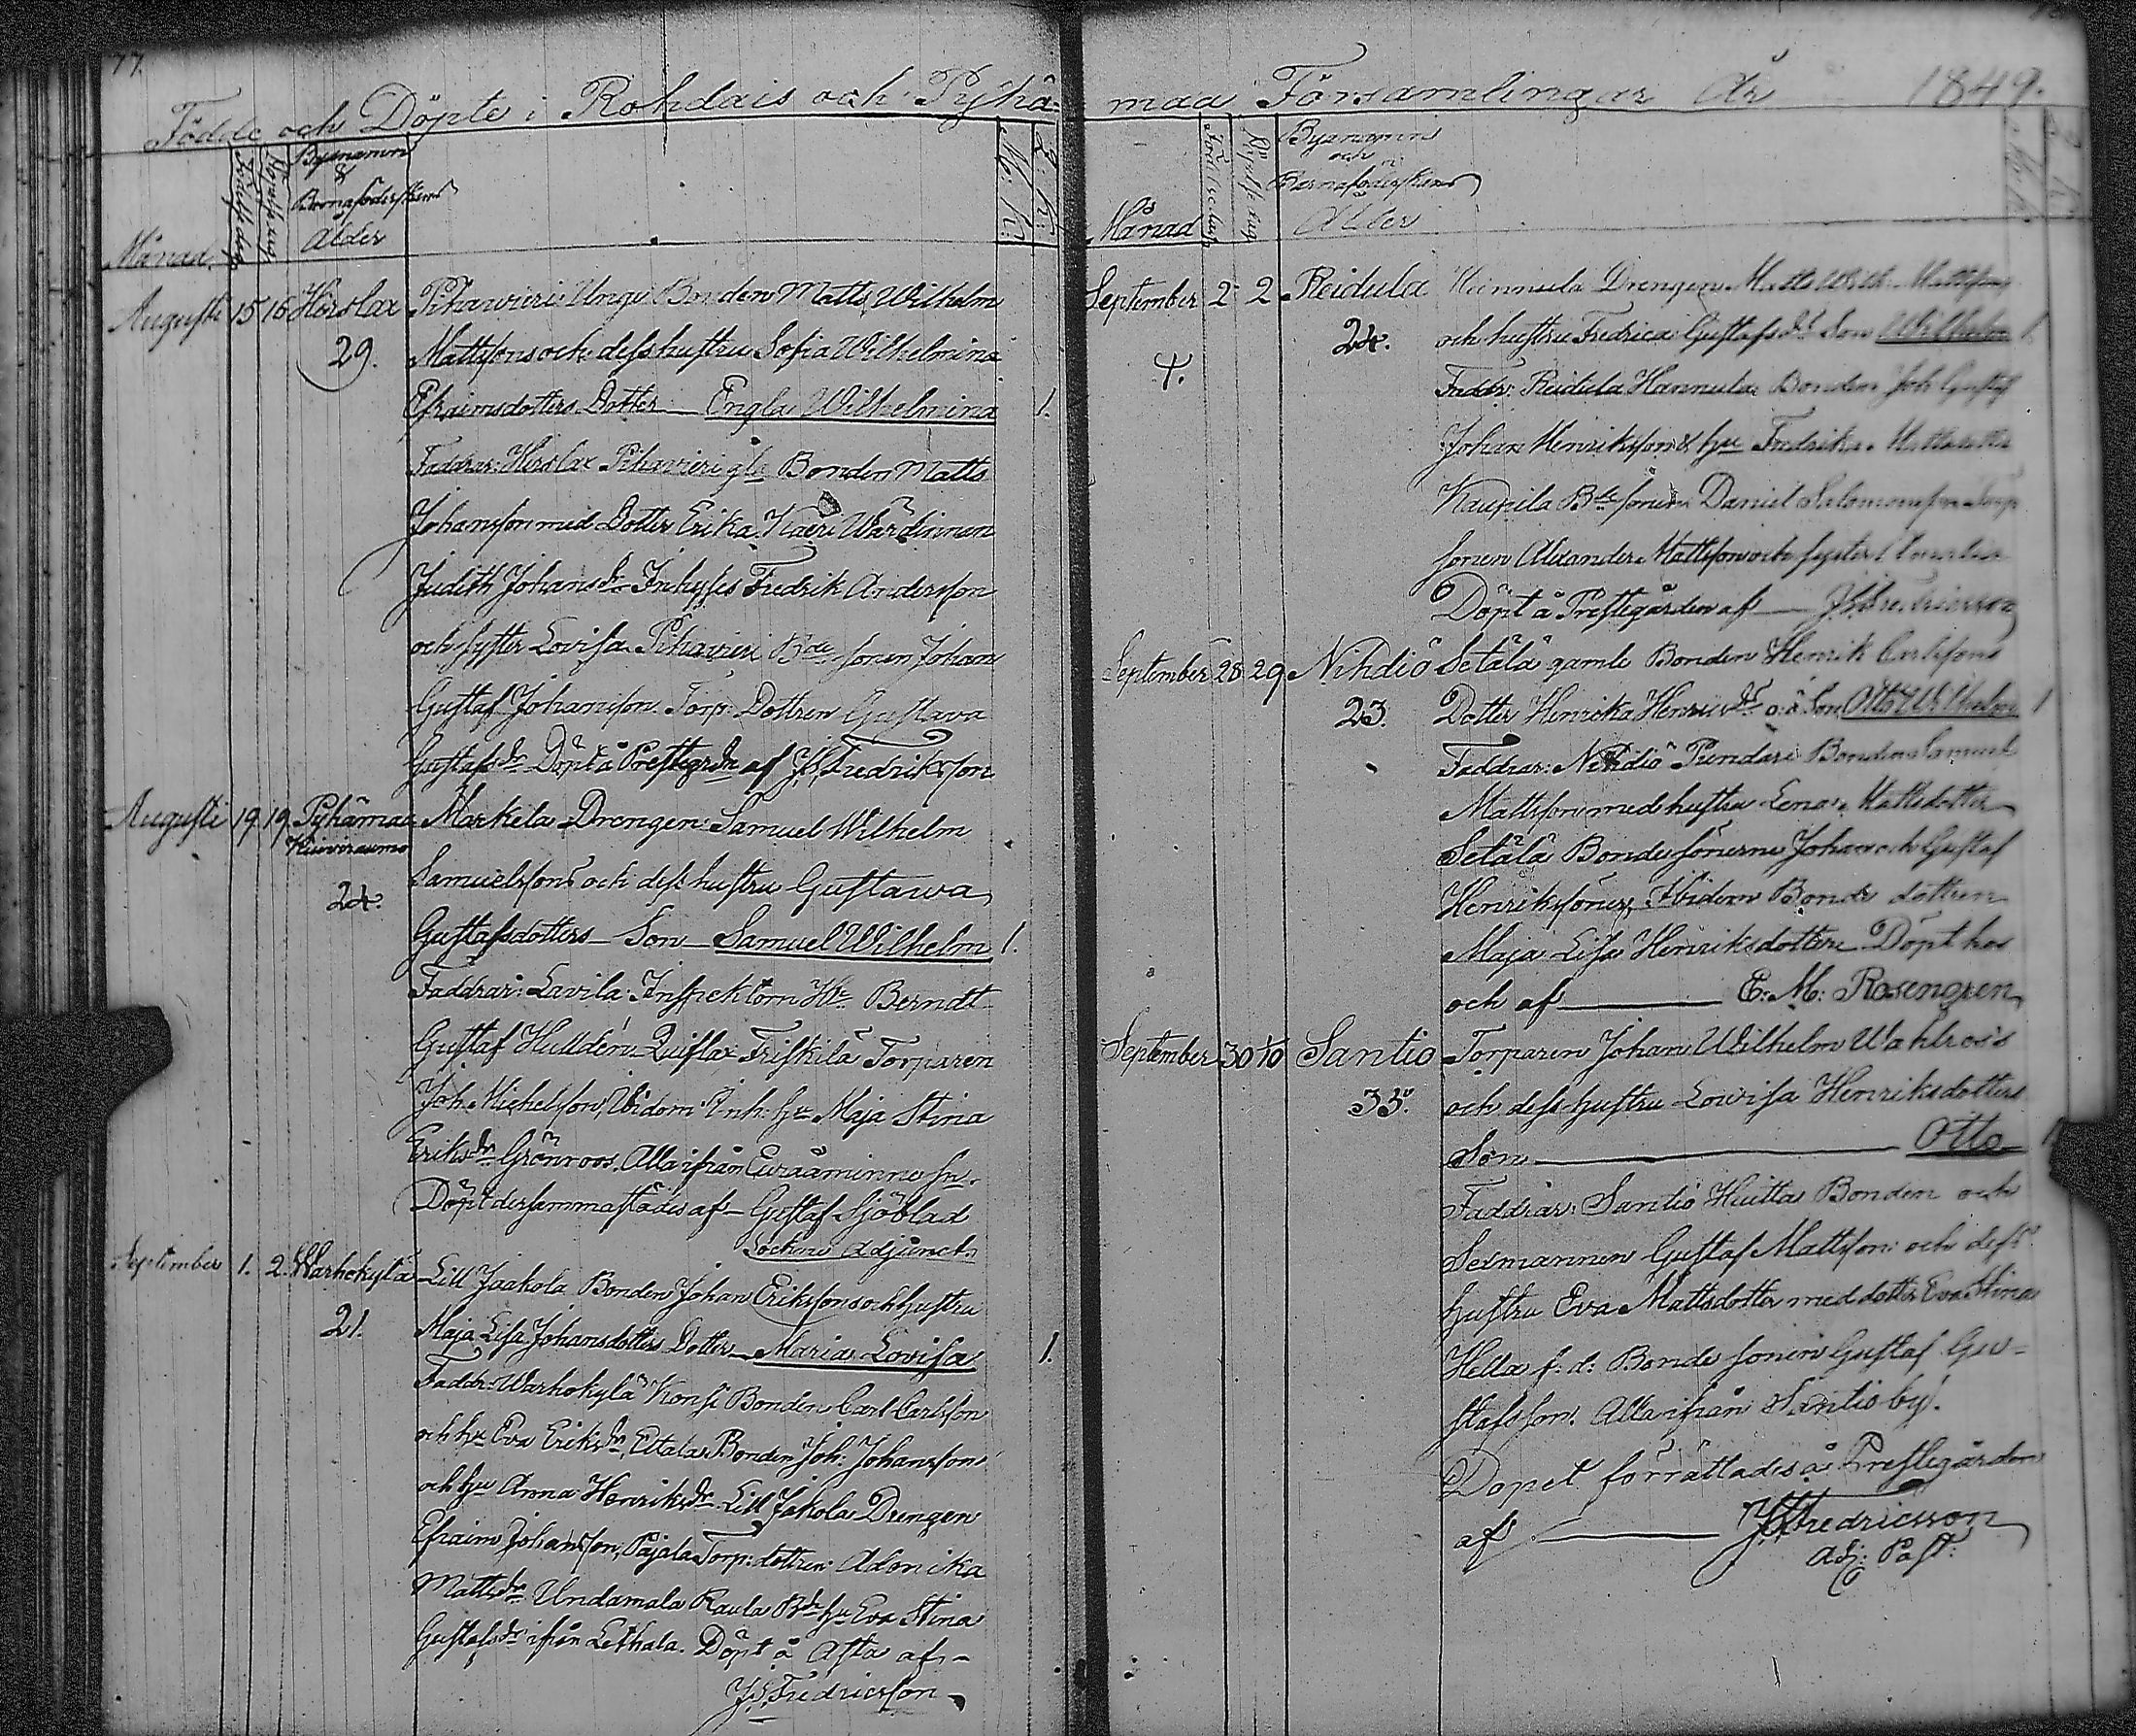 77.
Födde och Döpte i Rohdais och Pyhä-
Månad.
Födelsedag
Döpelsedag
Bynamn
&
Barnaföderskans
Ålder
M: K:
Q: K:
Augusti 15 16 Hirslax Pihawieri Unge Bonden Matts Wilhelm
29. Mattssons och dess hustru Sofia Wilhelmina
Efraimsdotters Dotter Engla Wilhelmina 1.
Faddrar: Hirslax Pihavieri gla Bonden Matts
Johansson med Dotter Erika
Judith Johansdr Inhyses Fredrik Andersson
och syster Lovisa Pihavieri Bde sonen Johan
Gustaf Johansson. Torp: Dottren Gustava
Gustafsdr Döpt å Prestegrdn af J. S. Fredriksson
Augusti 19. 19. Pyhämaa Markela Drengen Samuel Wilhelm
Kuivirauma
24. Samuelssons och dess hustru Gustawa
Gustafsdotters Son Samuel Wilhelm 1.
Faddrar: Lavila: Inspektorn Hr Berndt
Gustaf Hulldén Friskila Torparen
Joh. Michelsson, Ibidem Inh: hu Maja Stina
Eriksdr Grönroos. Alla ifrån Euraåminne Sn.
Döpt dersammastädes af Gustaf Sjöblad
Sockne Adjunct.
September 1. 2. Warhokylä Lill Jaakola Bonden Johan Erikssons och hustru
21. Maja Lisa Johansdotters Dotter Maria Lovisa 1.
Faddr: Warhokylä Konsi Bonden Carl Carlsson
och hu Eva Eriksdr, Eltala Bonden Joh: Johansson
och hu Anna Henriksdr Lill Jakola Drengen
Efraim Johansson, Pajala Torp: dottren Adonika
Mattsdr Undamala Raula Bde hu Eva Stina
Gustafsdr ifrån Lethala. Döpt å Asta af
J. S. Fredricsson
maa Församlingar År 1849.
Månad
Födelsedag
Döpelsedag
Bynamn
och
Barnaföderskans
Ålder
September 2 2 Reidula Hannula Drengen Matts Wilh. Mattssons
24. och hustru Fredrica Gustafsdrs Son Wilhelm 1
Faddr: Reidula Hannula Bonden Joh Gustaf
Johan Henriksson & hu Fredrika Mattsdotter
Kaupila Bde sonen Daniel Salomonsson
sonen Alexander Mattsson och syster
Döpt å Prestegården af J. S. Fredricsson
September 28 29 Nihdiö Setälä gamle Bonden Henrik Carlssons
23. Dotter Henrika Henricsdrs o: ä: Son Otto Wilhelm 1
Faddrar: Nihdiö Pundari Bonden Samuel
Mattsson med hustru Lena Mattsdotter
Setälä Bondesönerne Johan och Gustaf
Henrikssöner, Ibidem Bonde dottren
Maja Lisa Henriksdotter Döpt hos
och af E: M: Rosengren
September 30 Santio Torparen Johan Wilhelm Wahlroos
33. och dess hustru Lowisa Henriksdotters
Son Otto 1
Faddrar: Santio Huitta Bonden och
Sexmannen Gustaf Mattsson och dess
hustru Eva Mattsdotter med dotter Eva Stina
Hella f: d: Bonde sonen Gustaf Gu-
stafsson. Alla ifrån Santio by.
Dopet förrättades å Prestegården
af J. S. Fredricsson
Adj: Past: